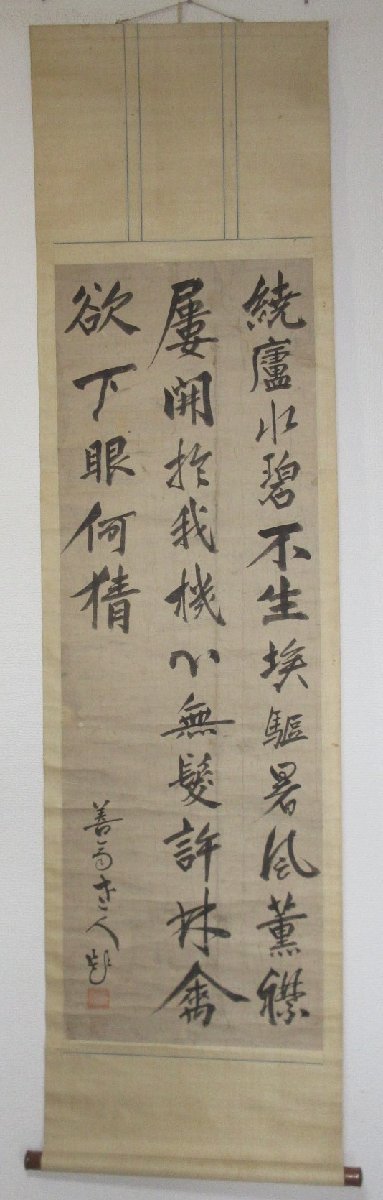 繞廬水碧不生埃驅暑風薰襟
屢開於我機心無髮許林禽
欲下眼何猜
善
人